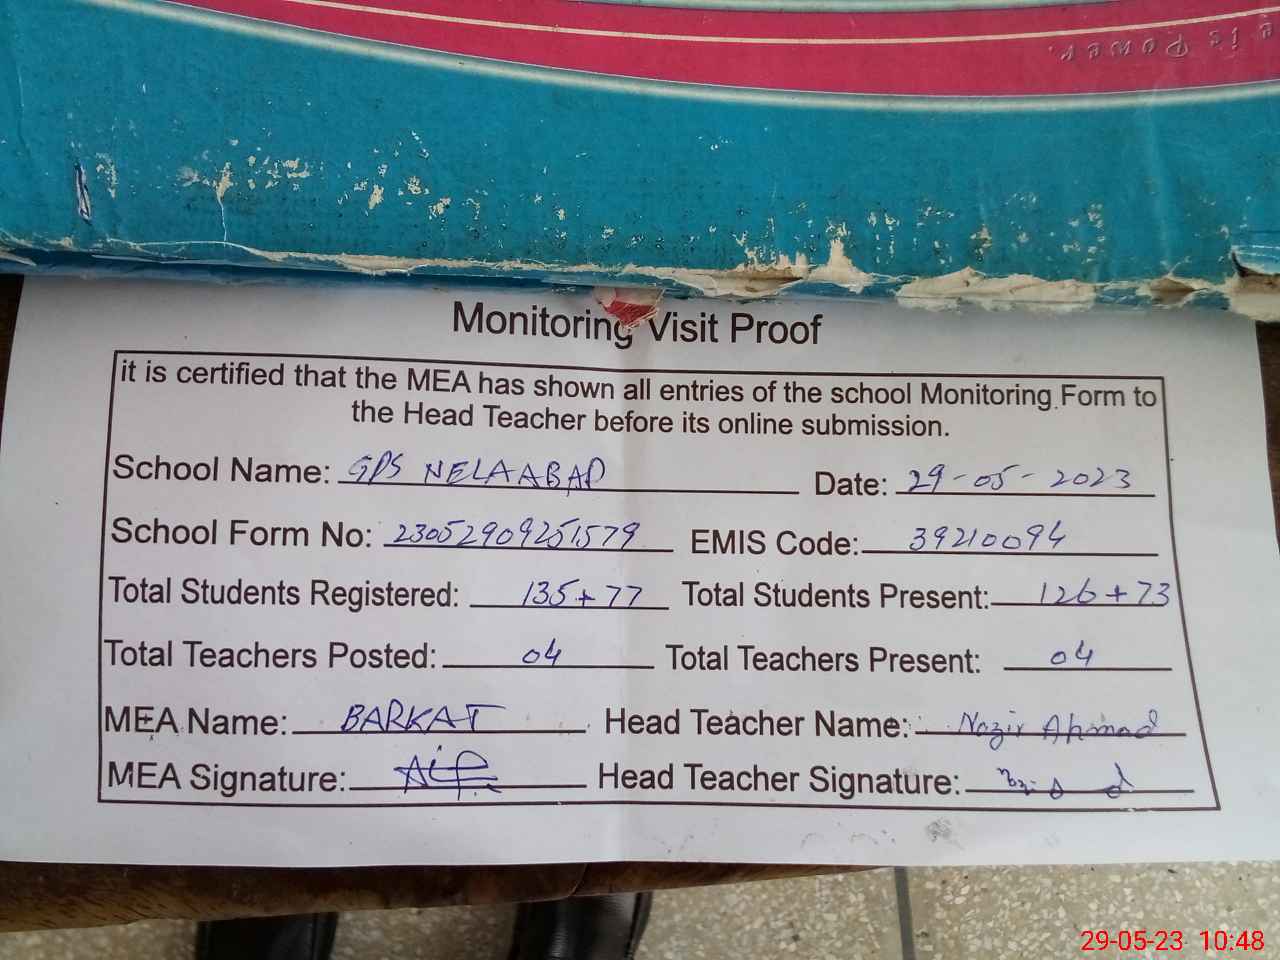 e is Power.
Monitoring Visit Proof
it is certified that the MEA has shown all entries of the school Monitoring Form to
the Head Teacher before its online submission.
School Name: GPS NELAABAD Date: 29-05-2023
School Form No: 23052909251579 EMIS Code: 39210094
Total Students Registered: 135+77 Total Students Present: 126+73
Total Teachers Posted: 04 Total Teachers Present: 04
MEA Name: BARKAT Head Teacher Name: Nazir Ahmad
MEA Signature: Head Teacher Signature:
29-05-23 10:48